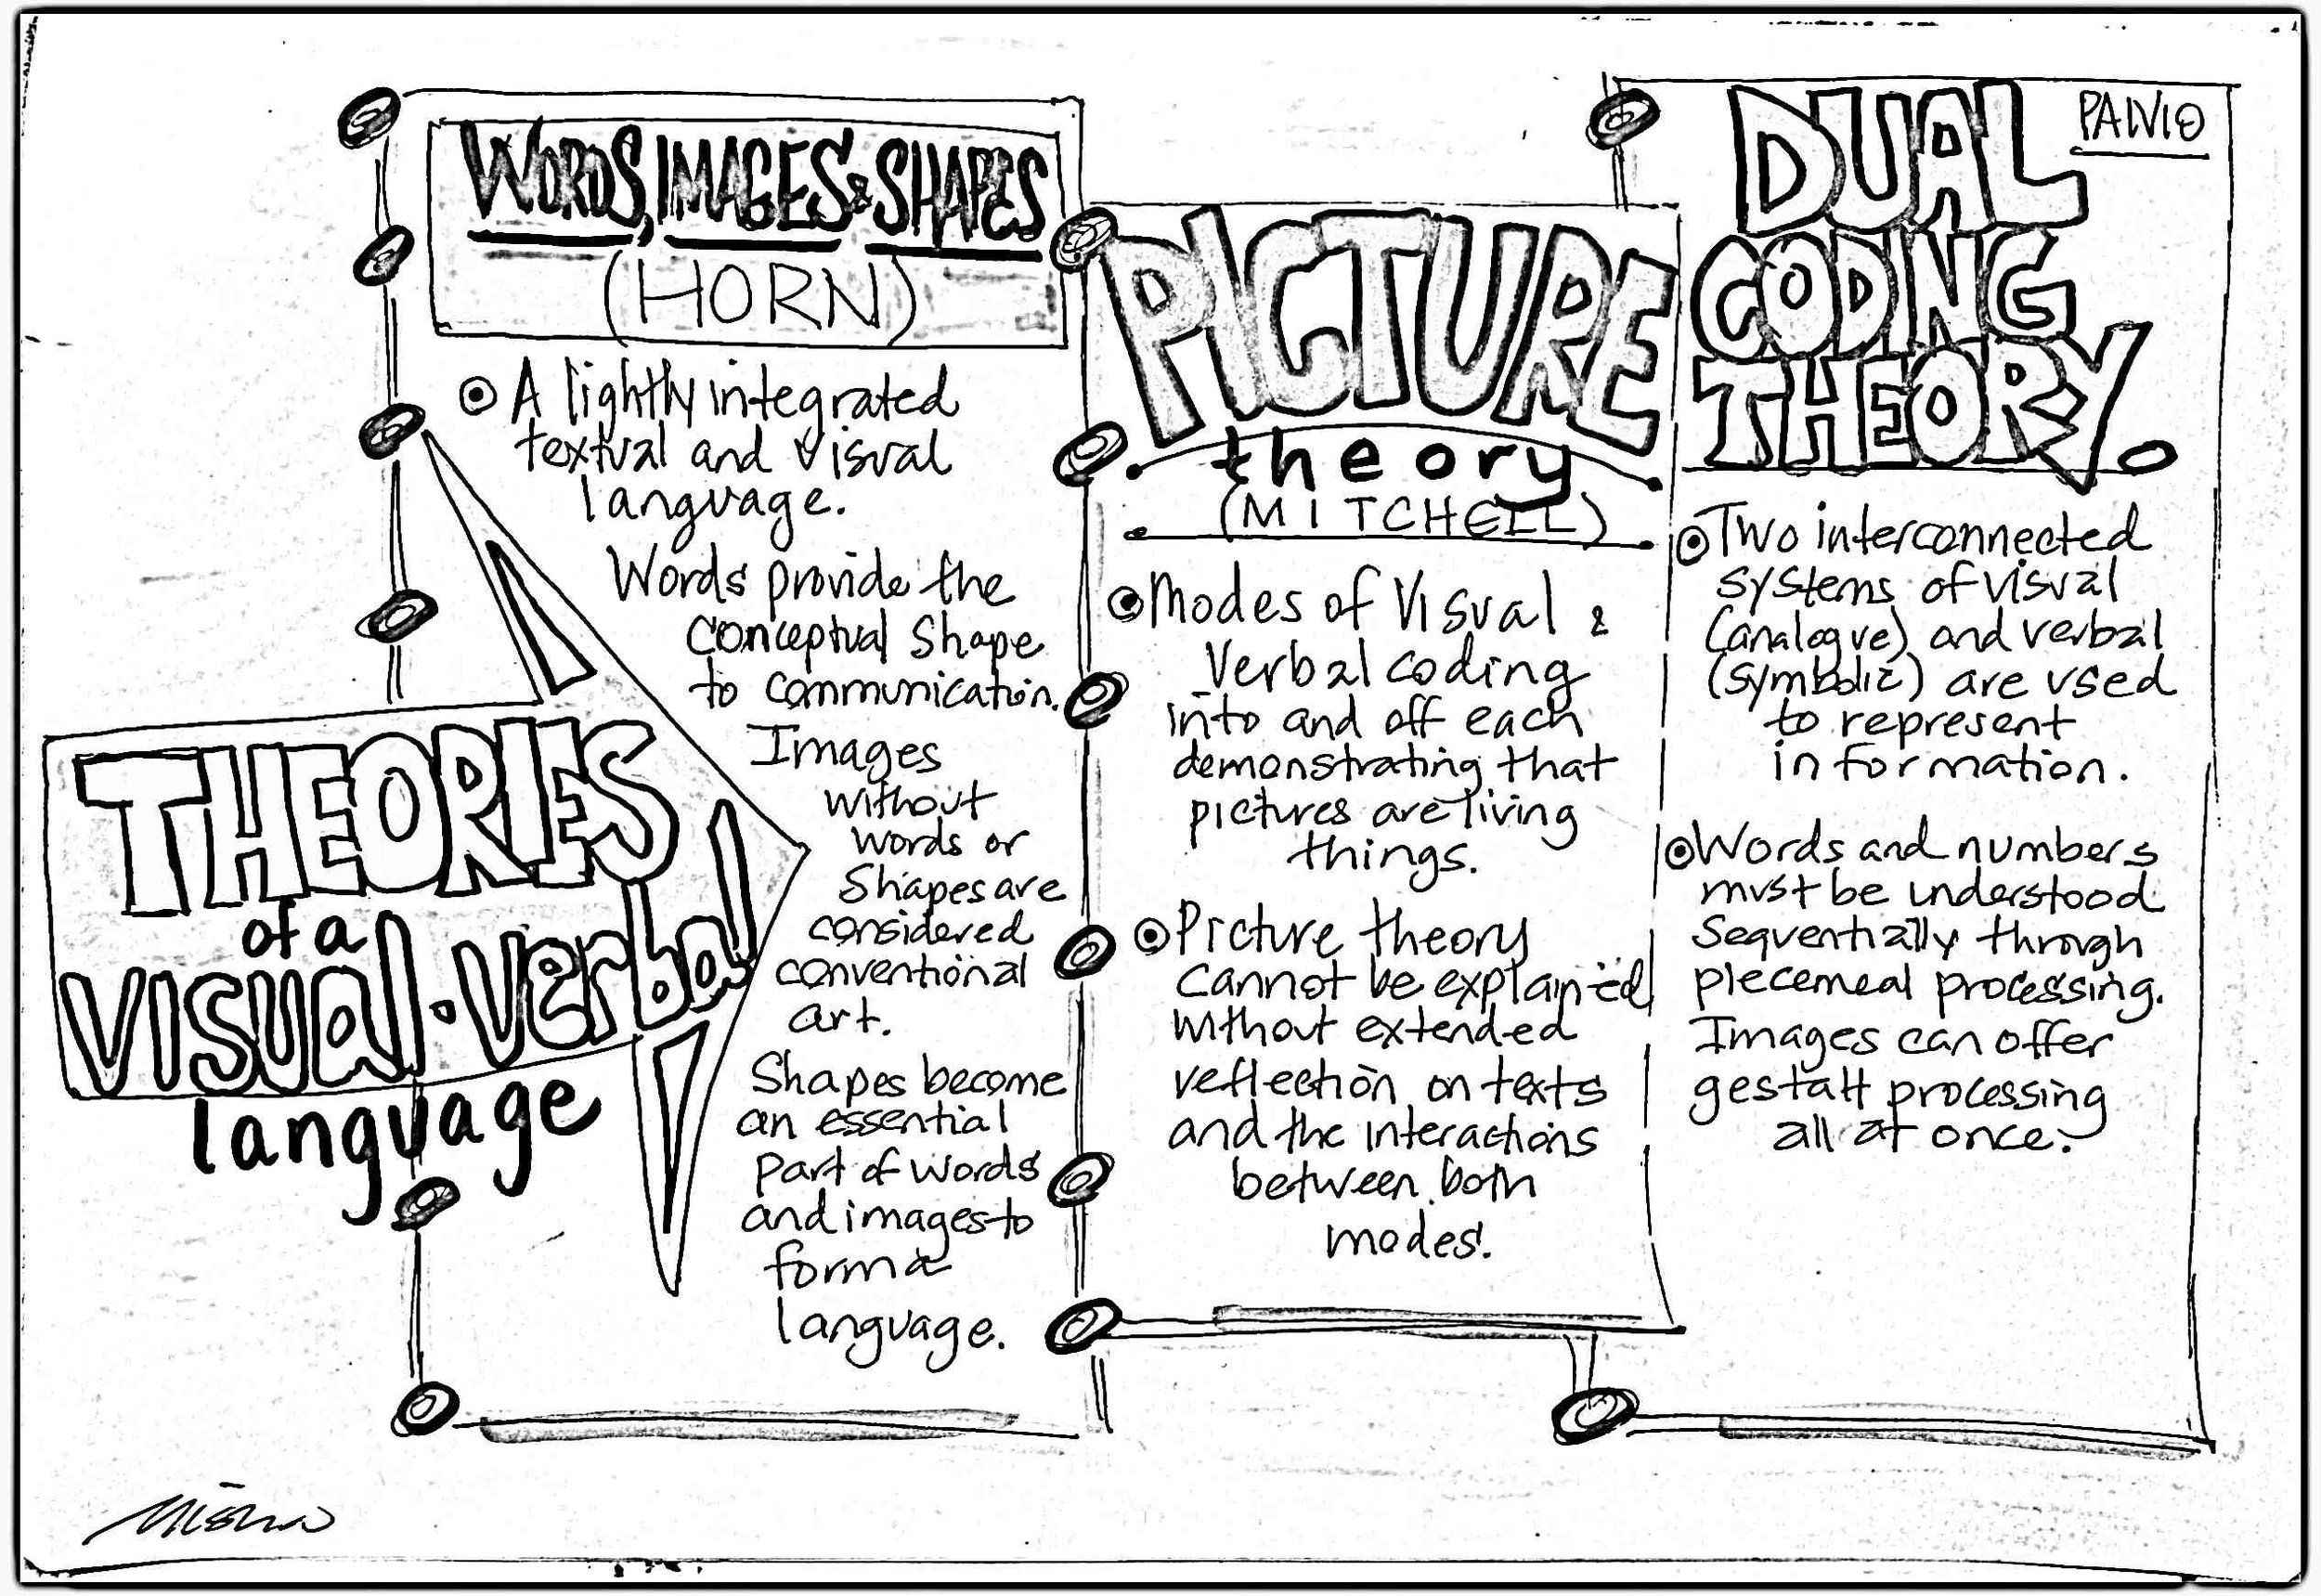 THEORIES
of a
VISUAL-Verbal
language
WORDS, IMAGES & SHAPES
(HORN)
A tightly integrated
textual and visual
language.
Words provide the
conceptual shape
to communication.
Images
without
words or
shapes are
considered
conventional
art.
Shapes become
an essential
part of words
and images to
form a
language.
PICTURE
theory
(MITCHELL)
Modes of Visual &
Verbal coding
into and off each
demonstrating that
pictures are living
things.
Picture theory
cannot be explained
without extended
reflection on texts
and the interactions
between both
modes.
DUAL
PAIVIO
CODING
THEORY.
Two interconnected
systems of visual
(analogue) and verbal
(symbolic) are used
to represent
information.
Words and numbers
must be understood
sequentially through
piecemeal processing.
Images can offer
gestalt processing
all at once.